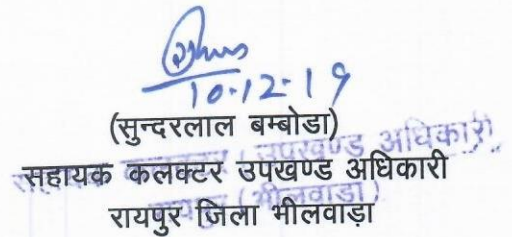 10.12.19
(सुन्दरलाल बम्बोडा)
सहायक कलक्टर उपखण्ड अधिकारी
रायपुर जिला भीलवाड़ा
उपखण्ड अधिकारी
(भीलवाड़ा)